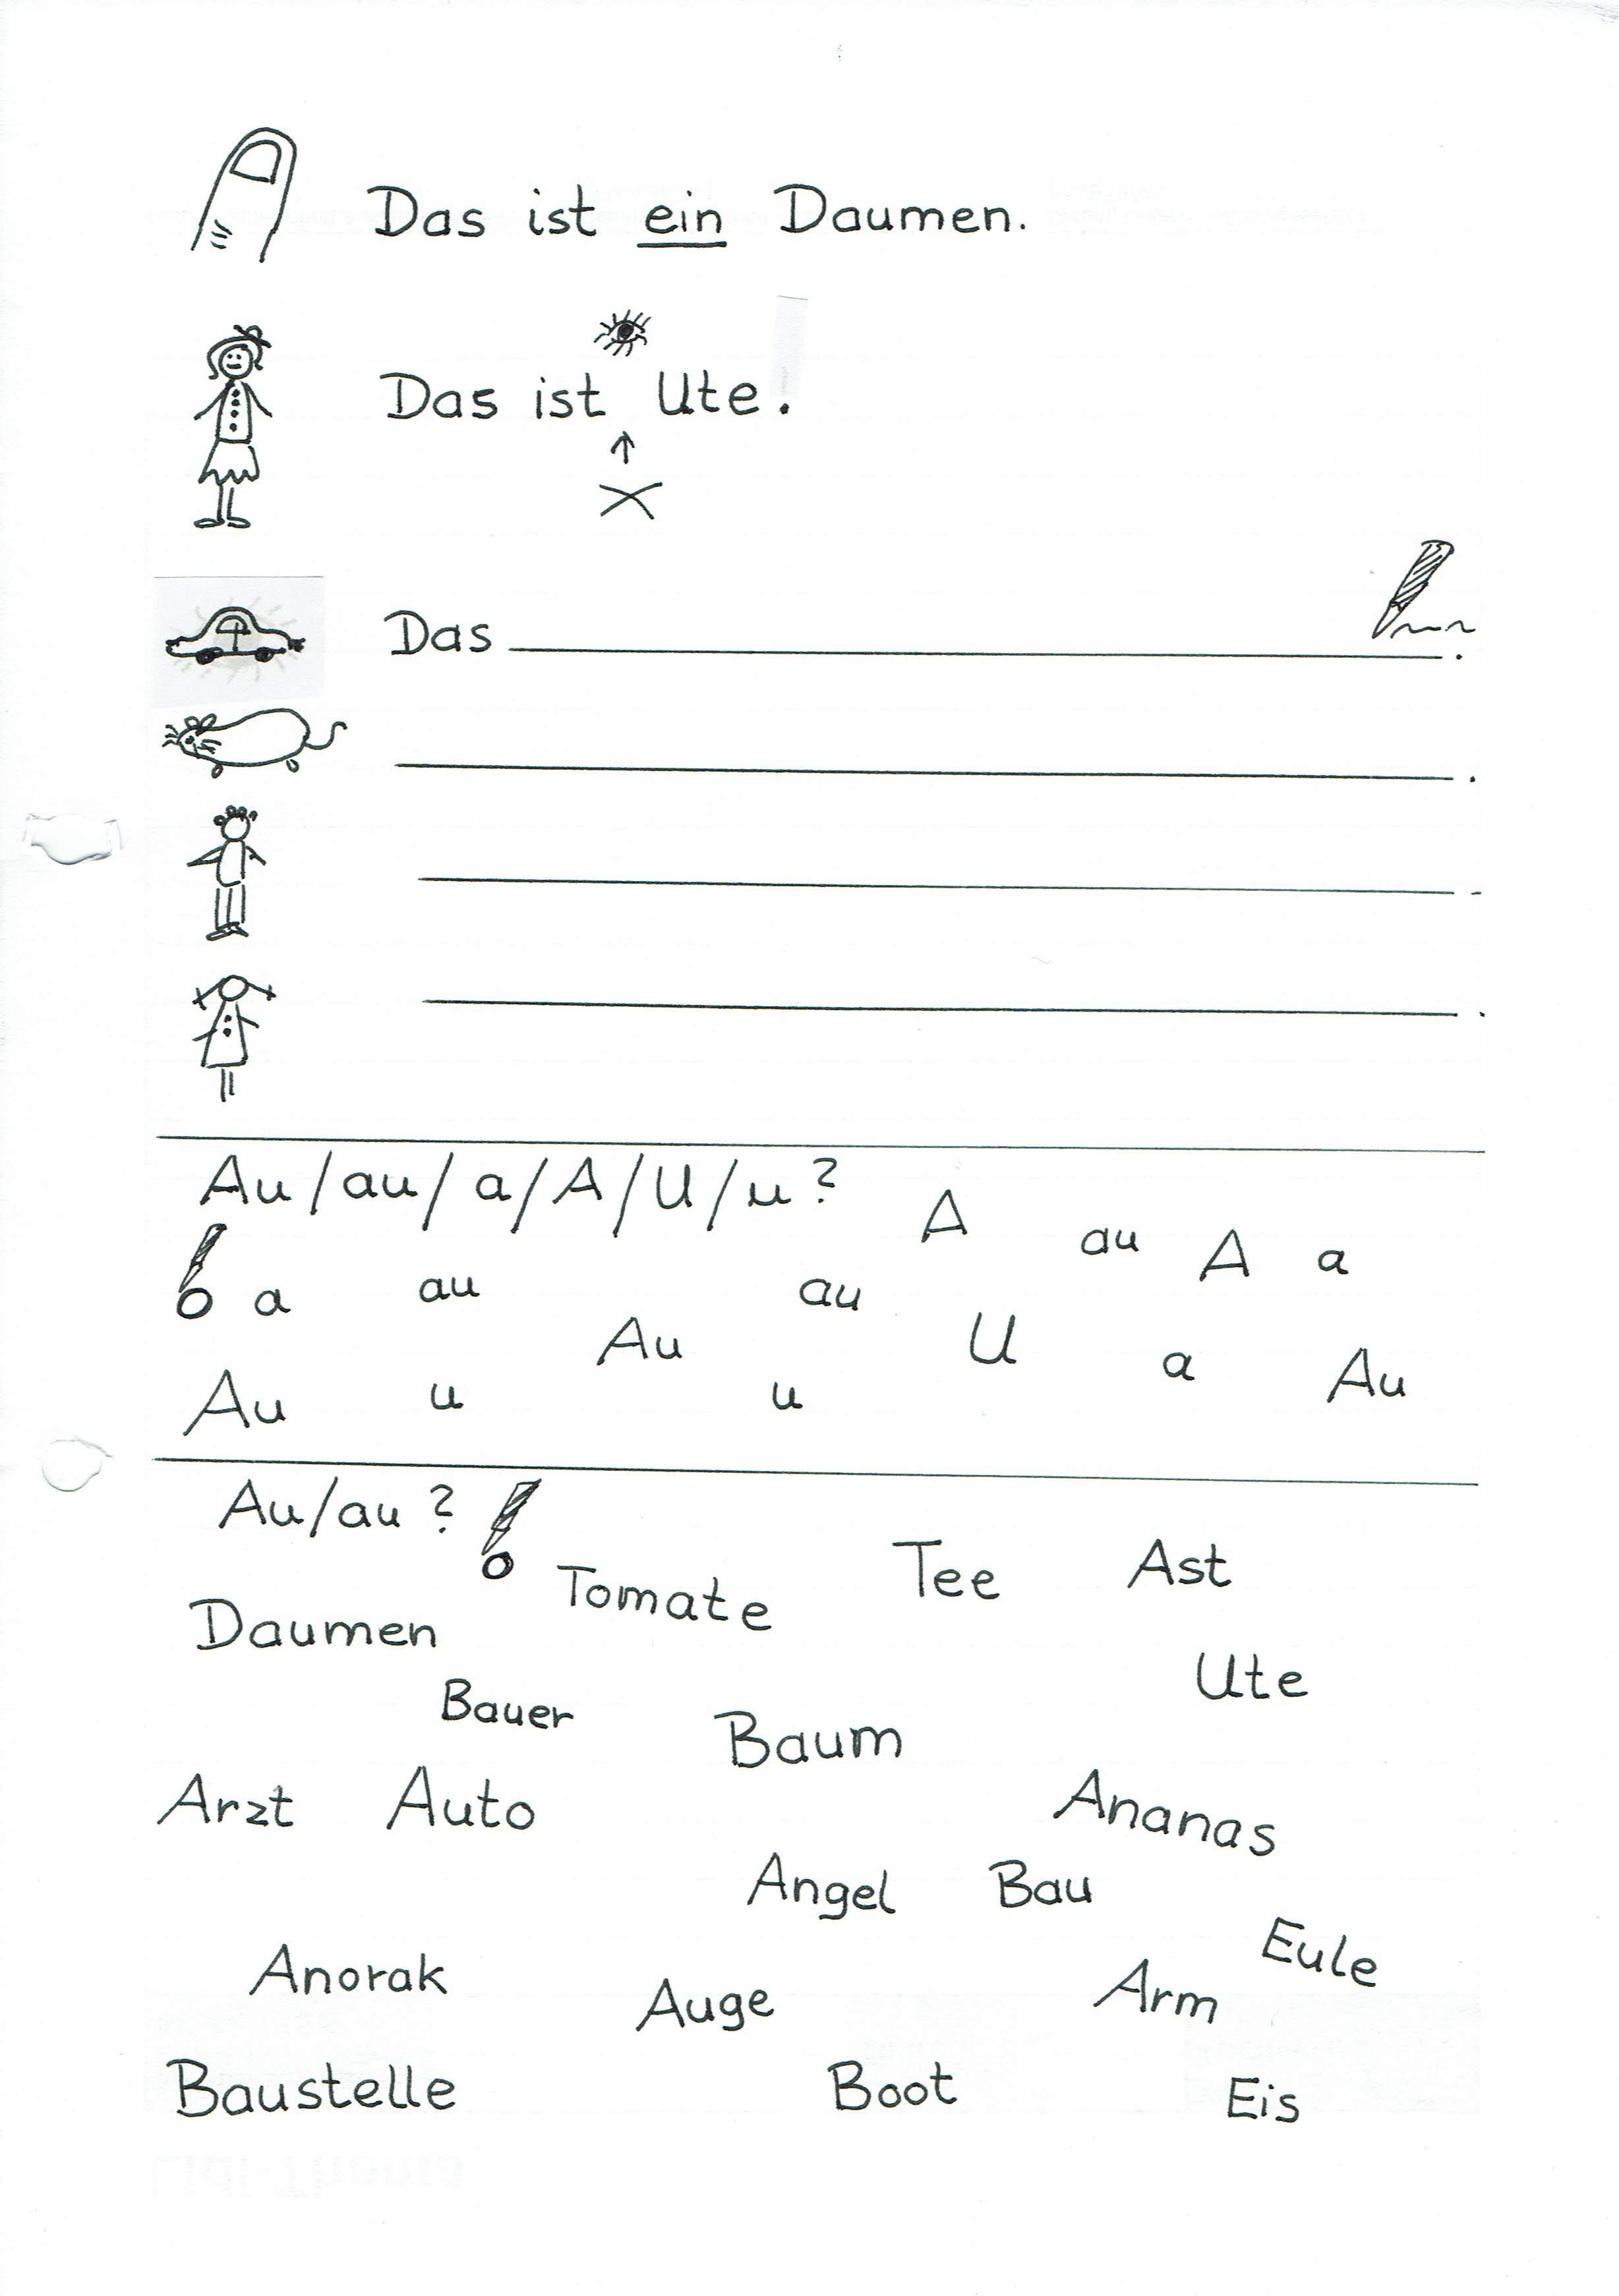 Das ist ein Daumen.
Das ist Ute.
Das
Au / au / a / A / U / u ?
A
au A a
a au au
Au U a Au
Au u u
Au/au ?
Tomate Tee Ast
Daumen
Ute
Bauer
Baum
Arzt Auto
Ananas
Angel Bau
Eule
Anorak
Auge Arm
Baustelle Boot Eis